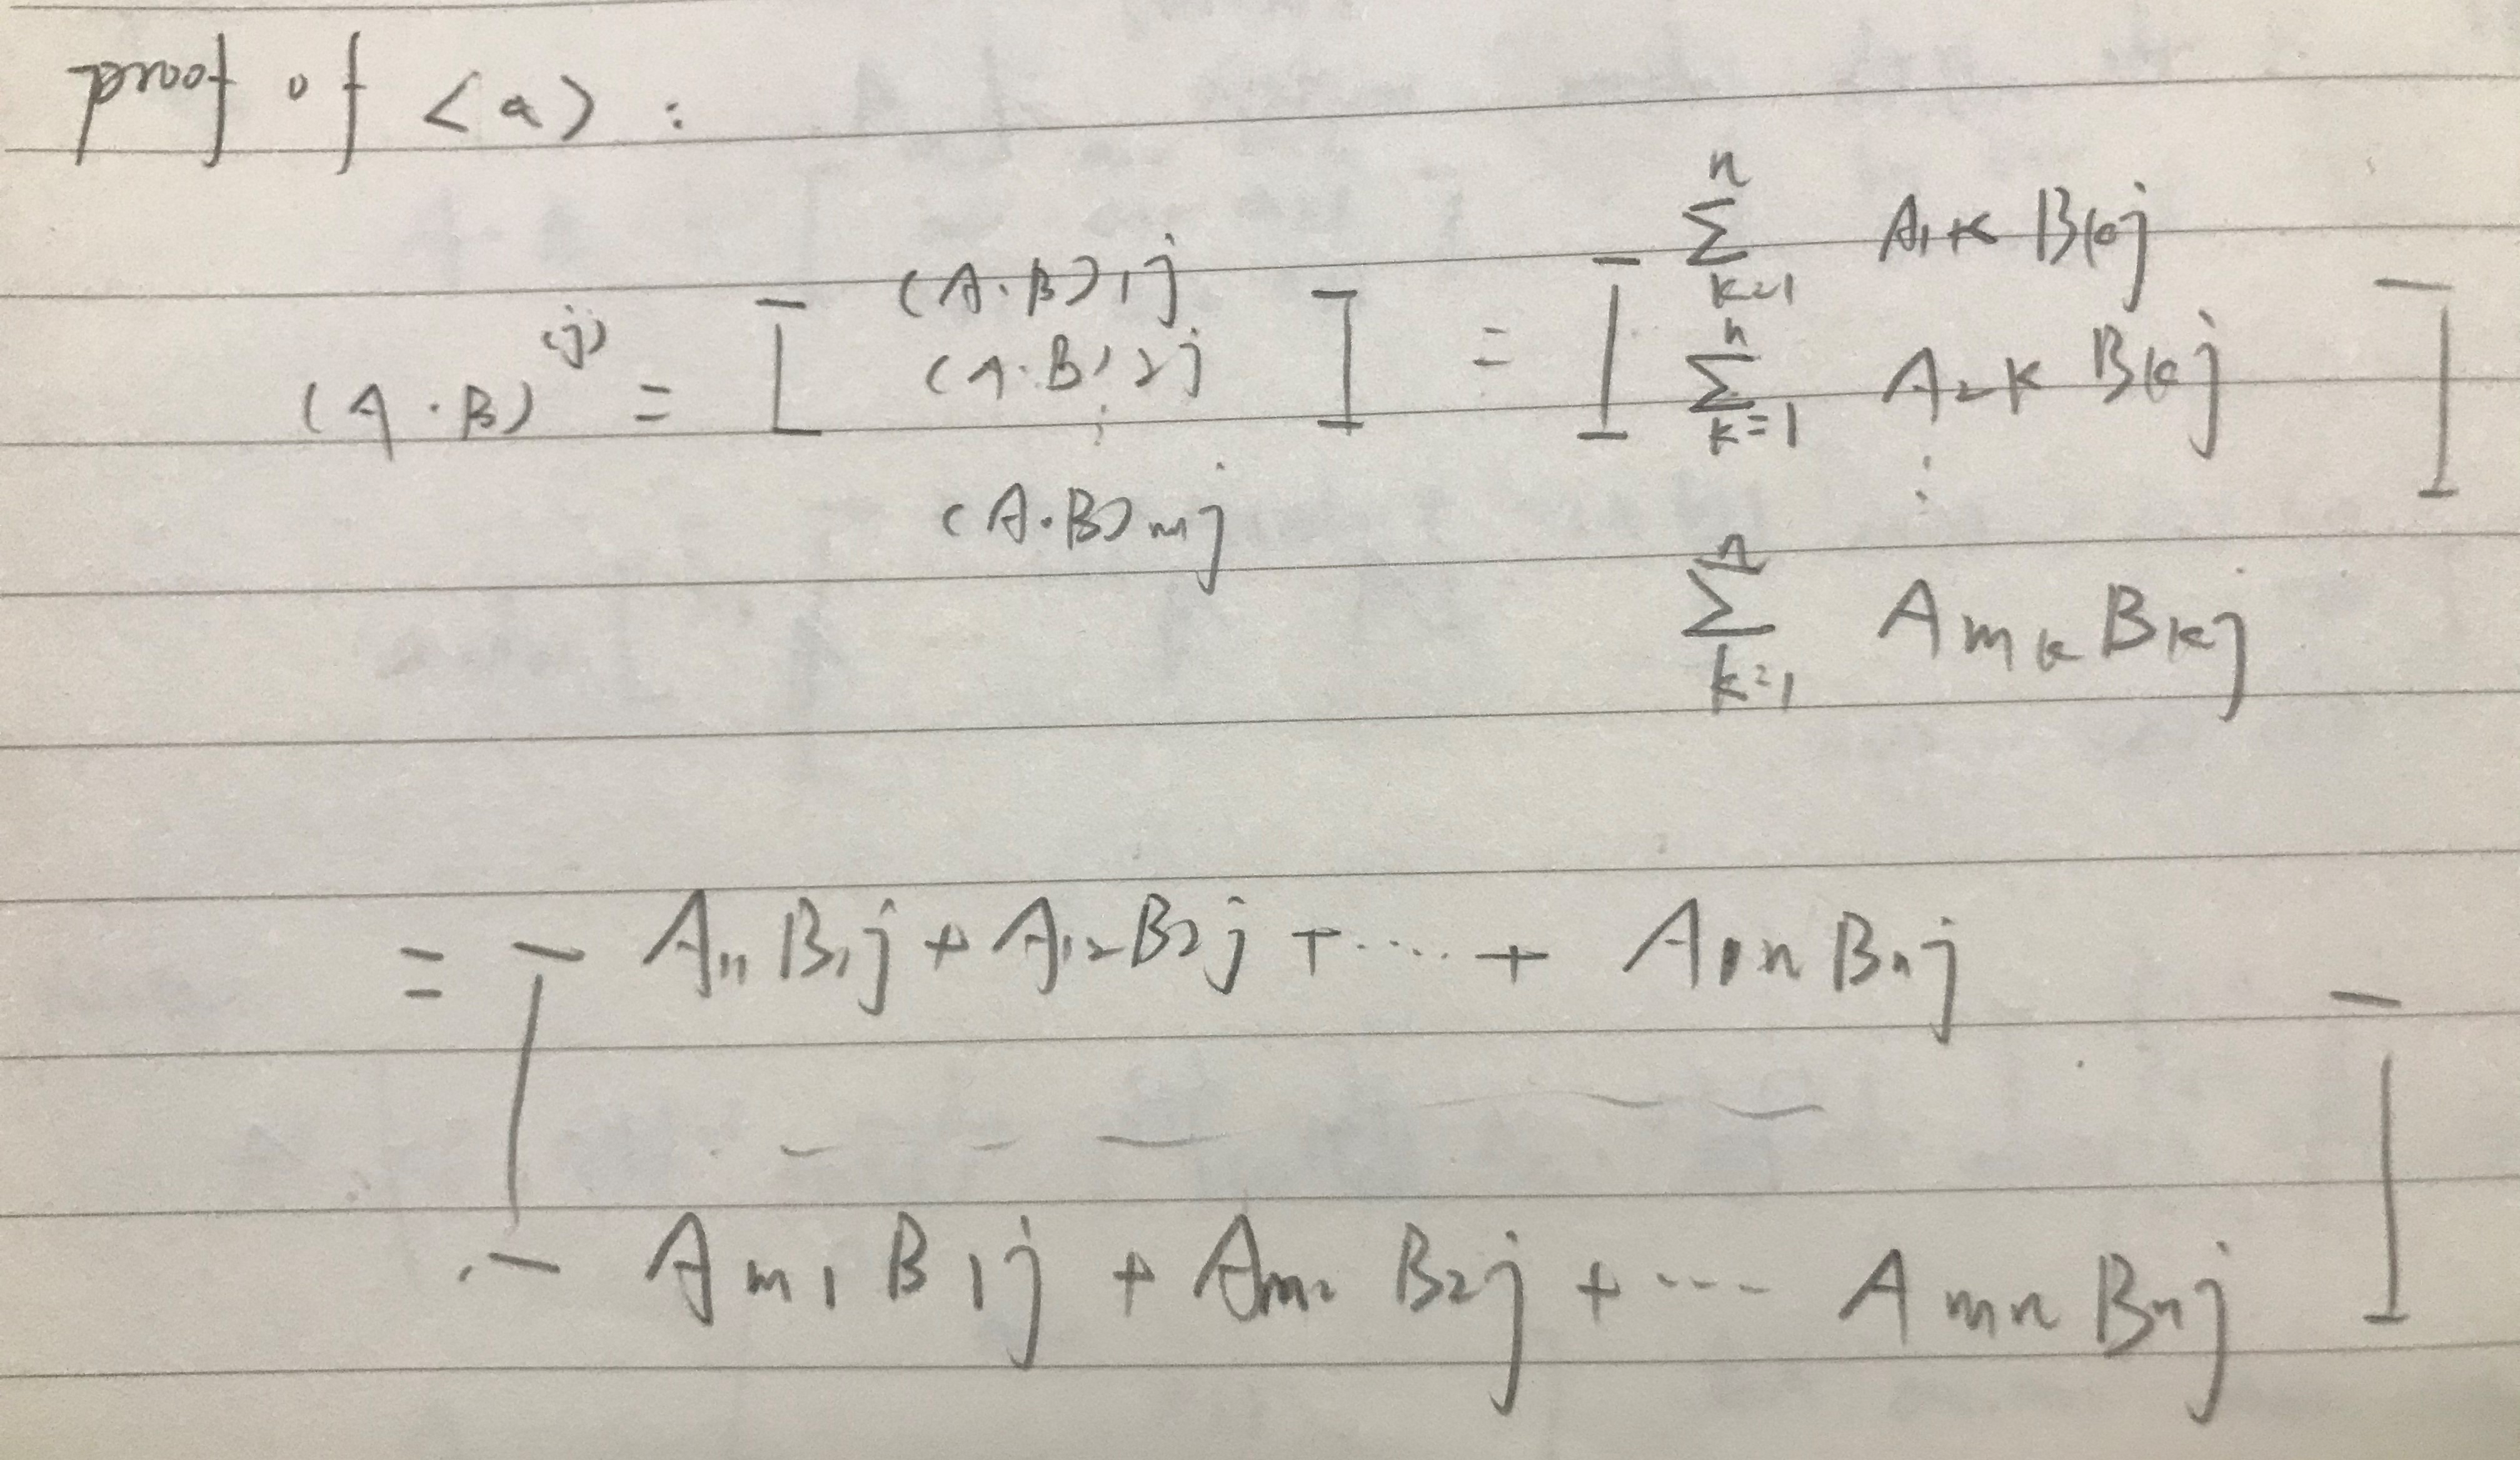 proof of <a> :
(A·B)^(j) = [ (A·B)1j ] = [ ∑_{k=1}^{n} A1k Bkj ]
(A·B)2j ∑_{k=1}^{n} A2k Bkj
⋮ ⋮
(A·B)mj ∑_{k=1}^{n} Amk Bkj
= [ A11 B1j + A12 B2j + ····· + A1n Bnj ]
Am1 B1j + Am2 B2j + ··· Amn Bnj